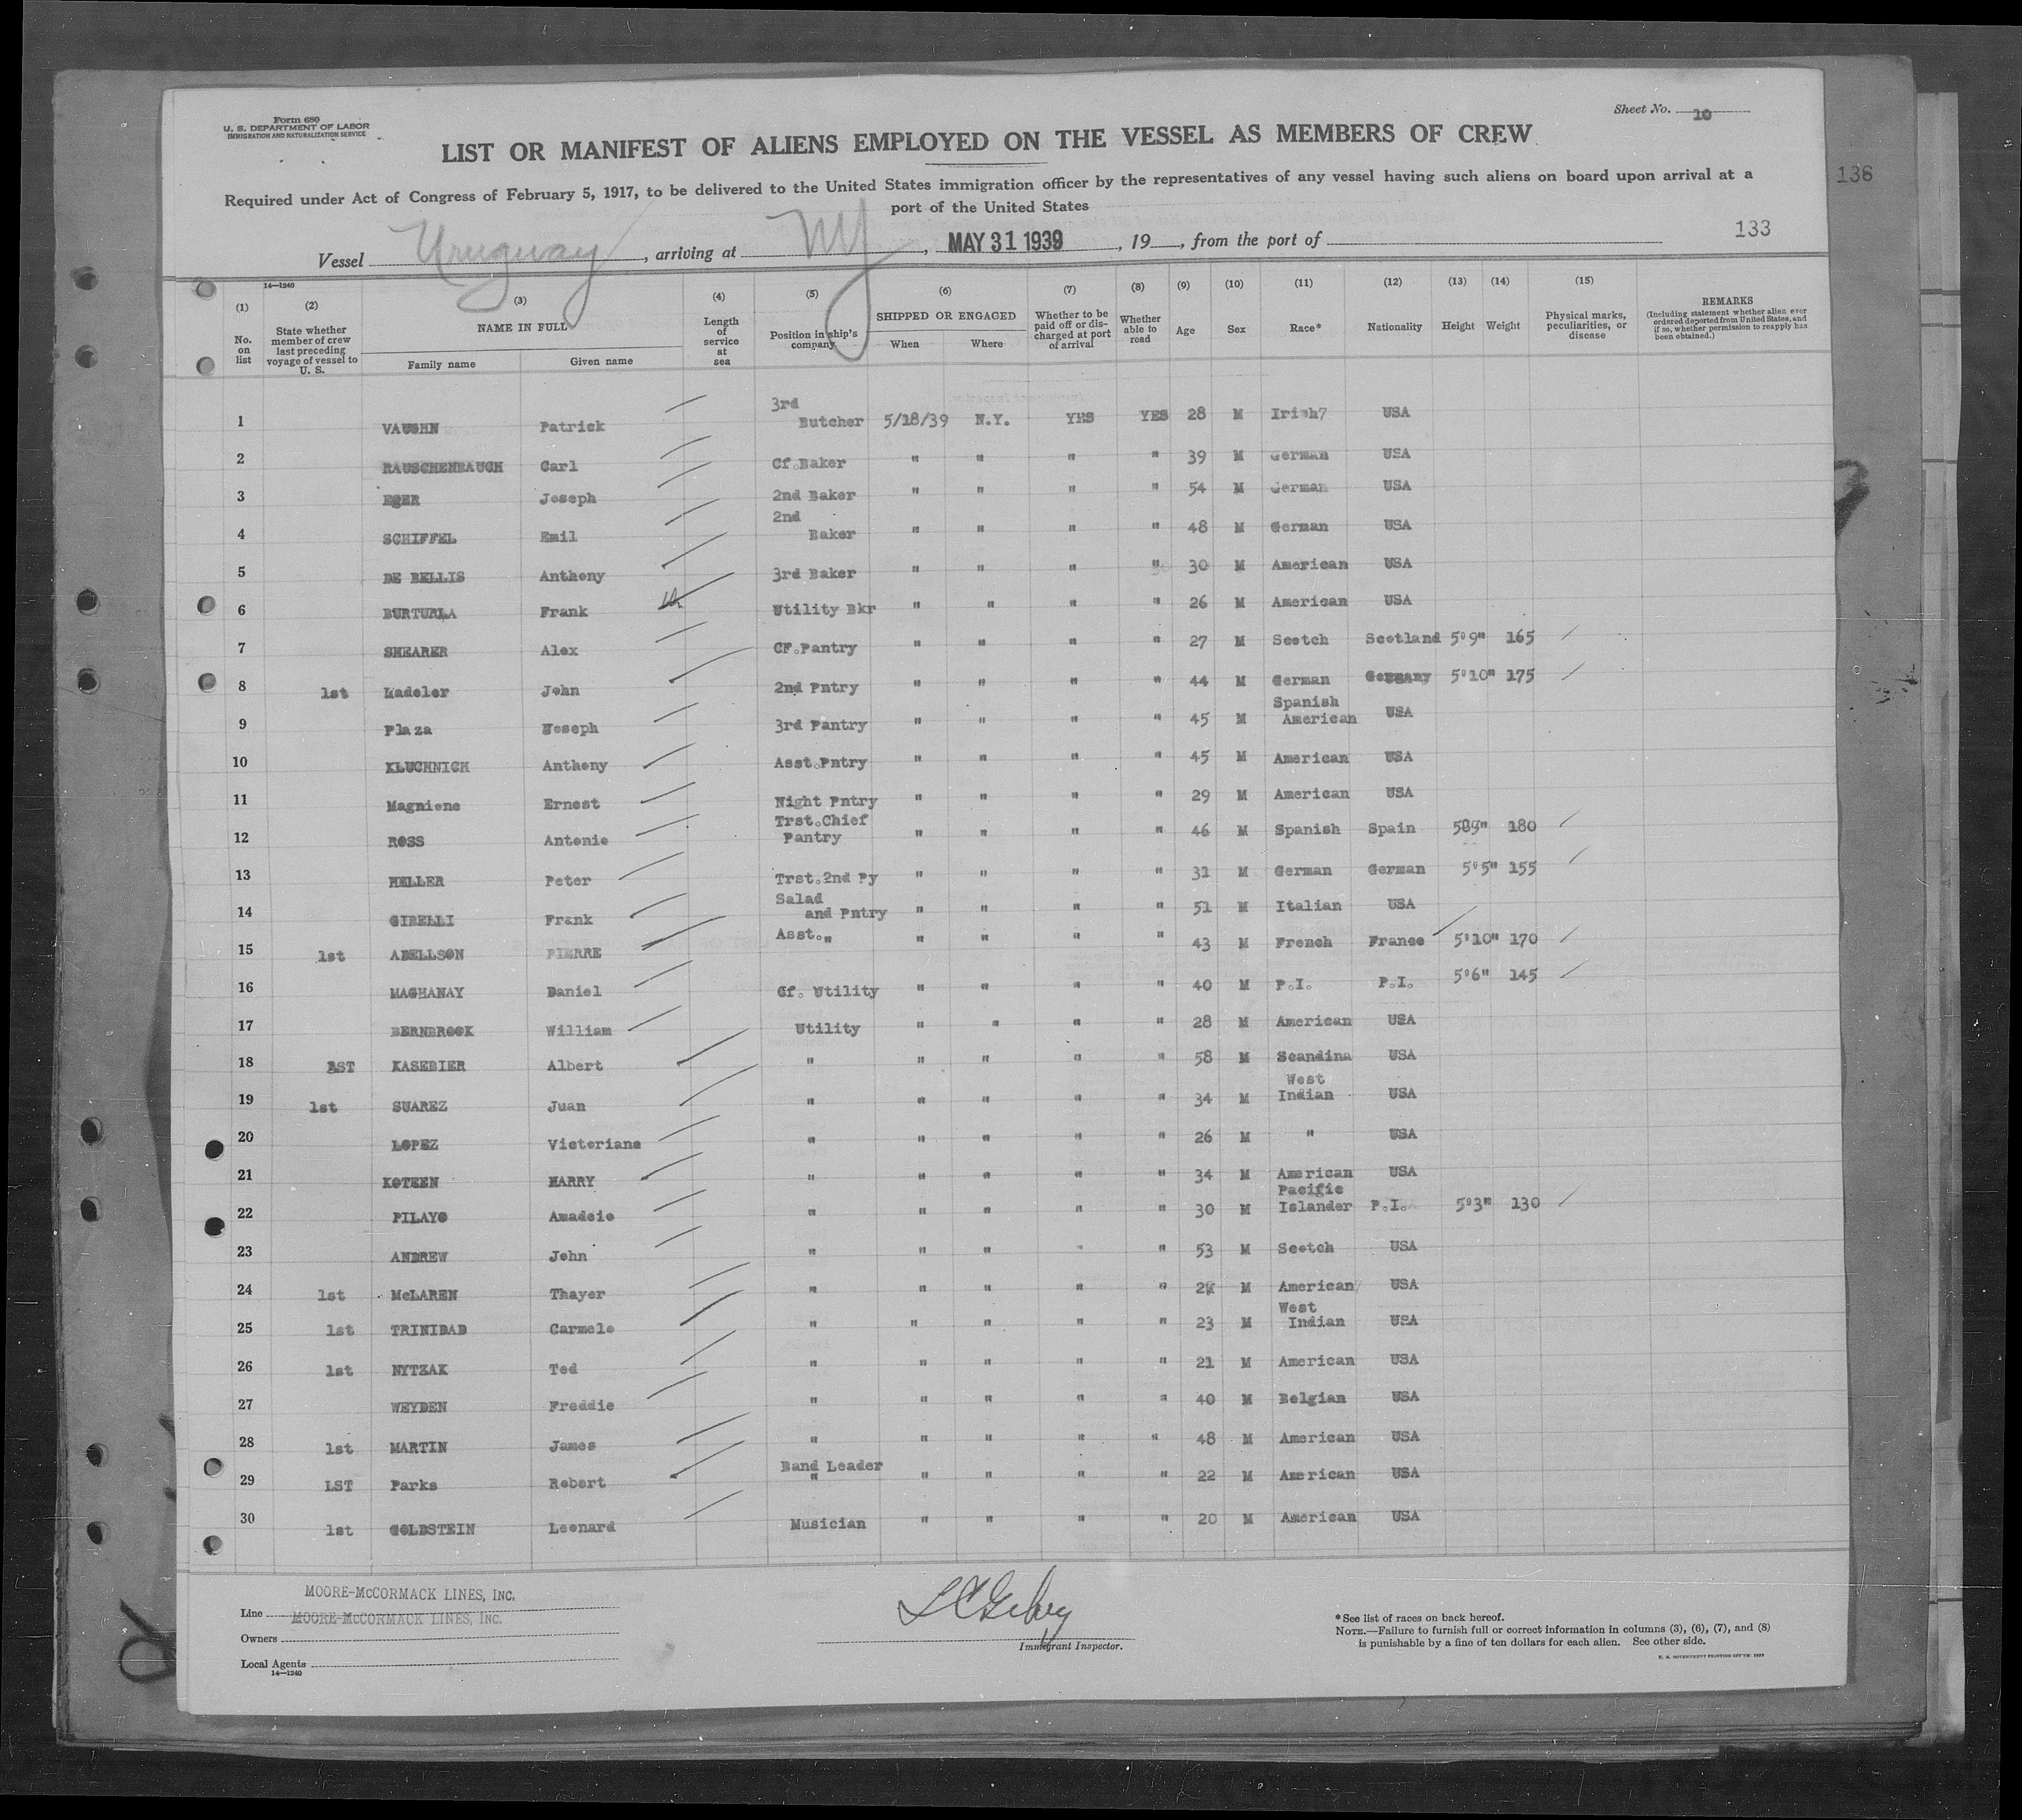 Form 680
U. S. DEPARTMENT OF LABOR
IMMIGRATION AND NATURALIZATION SERVICE
Sheet No. 10
LIST OR MANIFEST OF ALIENS EMPLOYED ON THE VESSEL AS MEMBERS OF CREW
136
Required under Act of Congress of February 5, 1917, to be delivered to the United States immigration officer by the representatives of any vessel having such aliens on board upon arrival at a
port of the United States
133
Vessel Uruguay, arriving at NY, MAY 31 1939, 19, from the port of
14—1240
(1) (2) (3) (4) (5) (6) (7) (8) (9) (10) (11) (12) (13) (14) (15)
No. on list
State whether member of crew last preceding voyage of vessel to U. S.
NAME IN FULL
Family name Given name
Length of service at sea
Position in ship's company
SHIPPED OR ENGAGED
When Where
Whether to be paid off or discharged at port of arrival
Whether able to read
Age Sex Race* Nationality Height Weight
Physical marks, peculiarities, or disease
REMARKS
(Including statement whether alien ever ordered deported from United States, and if so, whether permission to reapply has been obtained.)
1 VAUGHN Patrick 3rd Butcher 5/18/39 N.Y. YES YES 28 M Irish7 USA
2 RAUSCHENBAUCH Carl Cf.Baker " " " " 39 M German USA
3 EGER Joseph 2nd Baker " " " " 54 M German USA
4 SCHIFFEL Emil 2nd Baker " " " " 48 M German USA
5 DE BELLIS Anthony 3rd Baker " " " " 30 M American USA
6 BURTURLA Frank Utility Bkr " " " " 26 M American USA
7 SHEARER Alex CF.Pantry " " " " 27 M Scotch Scotland 5'9" 165
8 1st Madeler John 2nd Pntry " " " " 44 M German Germany 5'10" 175
9 Plaza Joseph 3rd Pantry " " " " 45 M Spanish American USA
10 KLUCHNICH Anthony Asst.Pntry " " " " 45 M American USA
11 Magniene Ernest Night Pntry " " " " 29 M American USA
12 ROSS Antonio Trst.Chief Pantry " " " " 46 M Spanish Spain 5'9" 180
13 HELLER Peter Trst.2nd Py " " " " 31 M German German 5'5" 155
14 GIBELLI Frank Salad and Pntry " " " " 51 M Italian USA
15 1st ABELLSON PIERRE Asst." " " " " 43 M French France 5'10" 170
16 MAGHANAY Daniel Cf. Utility " " " " 40 M P.I. P.I. 5'6" 145
17 BERNBROOK William Utility " " " " 28 M American USA
18 1ST KASEBIER Albert " " " " " 58 M Scandina USA
19 1st SUAREZ Juan " " " " " 34 M West Indian USA
20 LOPEZ Victoriano " " " " " 26 M " USA
21 KOTEEN HARRY " " " " " 34 M American USA
22 PILAYO Amadcio " " " " " 30 M Pacific Islander P.I. 5'3" 130
23 ANDREW John " " " " " 53 M Scotch USA
24 1st McLAREN Thayer " " " " " M American USA
25 1st TRINIDAD Carmelo " " " " " 23 M West Indian USA
26 1st NYTZAK Ted " " " " " 21 M American USA
27 WEYDEN Freddie " " " " " 40 M Belgian USA
28 1st MARTIN James " " " " " 48 M American USA
29 LST Parks Robert Band Leader " " " " " 22 M American USA
30 1st GOLDSTEIN Leonard Musician " " " " 20 M American USA
MOORE-McCORMACK LINES, INC.
Line MOORE-McCORMACK LINES, INC.
Owners
Local Agents
14—1240
Immigrant Inspector.
*See list of races on back hereof.
NOTE.—Failure to furnish full or correct information in columns (3), (6), (7), and (8)
is punishable by a fine of ten dollars for each alien. See other side.